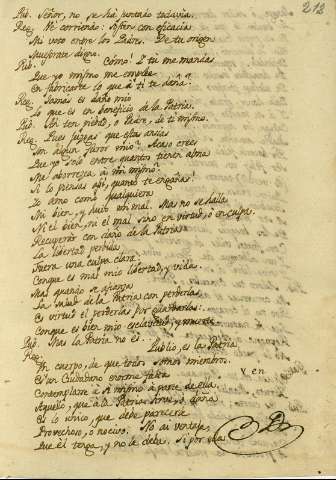 212
Pub. Señor, no se ha juntado todavia.
Reg. Vé corriendo: Esfuerza con eficacia
Mi voto entre los Padres. De tu origen
Muestrate digno.
Pub. Cómo! I tu me mandas
Que yo mismo me emplee
En fabricarte lo que á ti te daña?
Reg. Jamas es daño mio
Lo que es en beneficio de la Patria.
Pub. Ah ten piedad, o Padre, de ti mismo.
Reg. Pues juzgas que estas ansias
Son algun furor mio? Acaso crees
Que yo solo entre quantos tienen alma
Me aborrezca á mi mismo?
Si lo piensas asi, quanto te engañas!
Yo amo como qualquiera
Mi bien, y huio del mal. Mas no se halla
Ni el bien, ni el mal sino en virtud, ó en culpa.
Recuperar con daño de la Patria
La libertad perdida
Fuera una culpa clara:
Conque es mal mio libertad, y vida.
Mas quando se afianza
La salud de la Patria con perderlas,
Es virtud el perderlas por guardarla:
Conque es bien mio esclavitud, y muerte.
Pub. Mas la Patria no es..
Reg. Publio, es la Patria
Un cuerpo, de que todos somos miembros.
Es un Ciudadano enorme falta y en
Contemplarse á si mismo á parte de ella.
Aquello, que á la Patria sirve, ó daña
Es lo unico, que debe parecerle
Provechoso, o nocivo. No ai ventaja,
Que él tenga, y no la deba. Si por ella